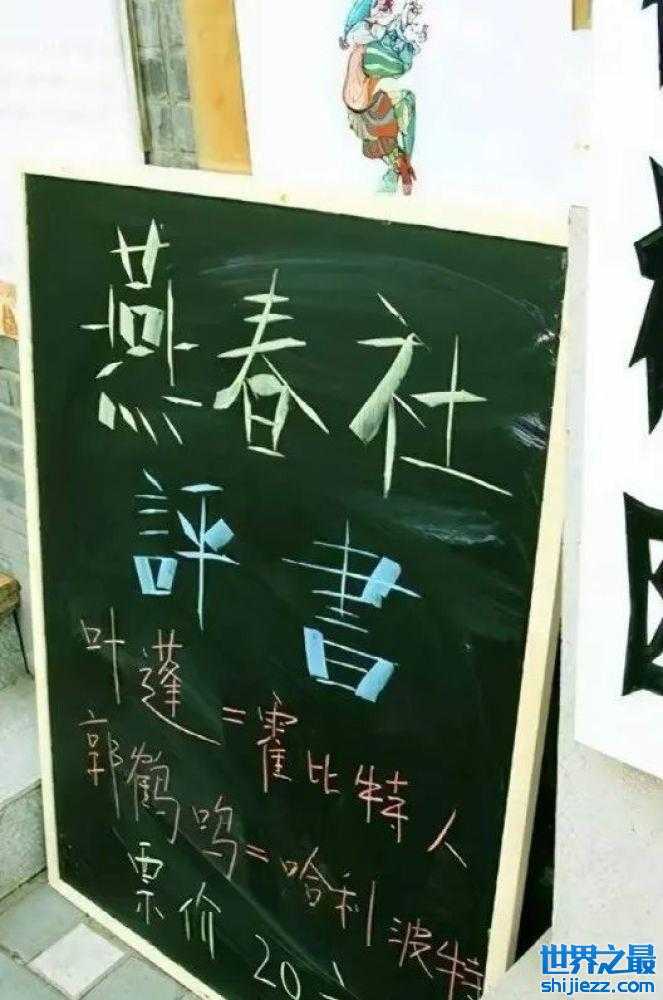 燕春社
評書
叶蓬=霍比特人
郭鹤鸣=哈利波特
票价20
世界之最
shijiezz.com